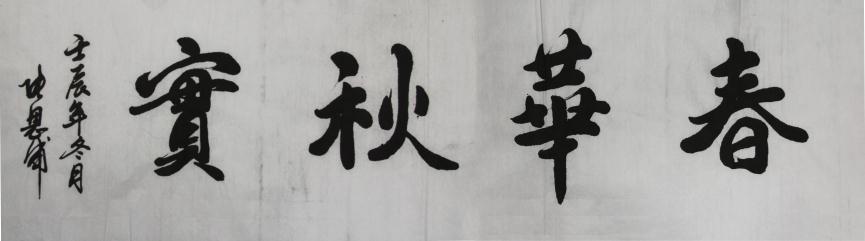 春華秋實
壬辰年冬月